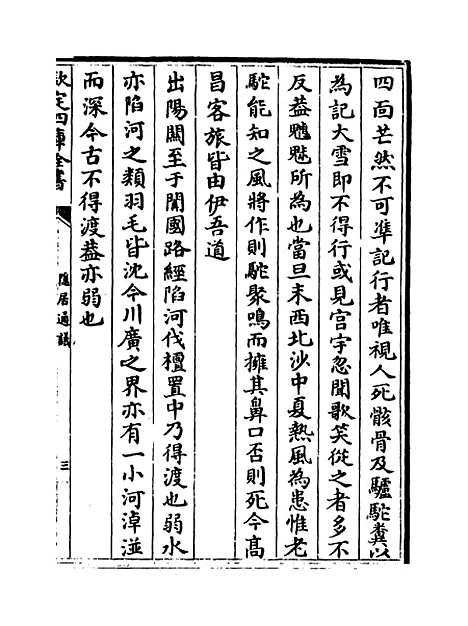 四面茫然不可準記行者唯視人死骸骨及驢駝糞以
為記大雪即不得行或見宫宇忽聞歌笑從之者多不
反葢魑魅所為也當旦末西北沙中夏熱風為患惟老
駝能知之風將作則駝聚鳴而擁其鼻口否則死今高
昌客旅皆由伊吾道
出陽關至于闐國路經陷河伐檀置中乃得渡也弱水
亦陷河之類羽毛皆沈今川廣之界亦有一小河淖湴
而深今古不得渡葢亦弱也
欽定四庫全書
隱居通議
三